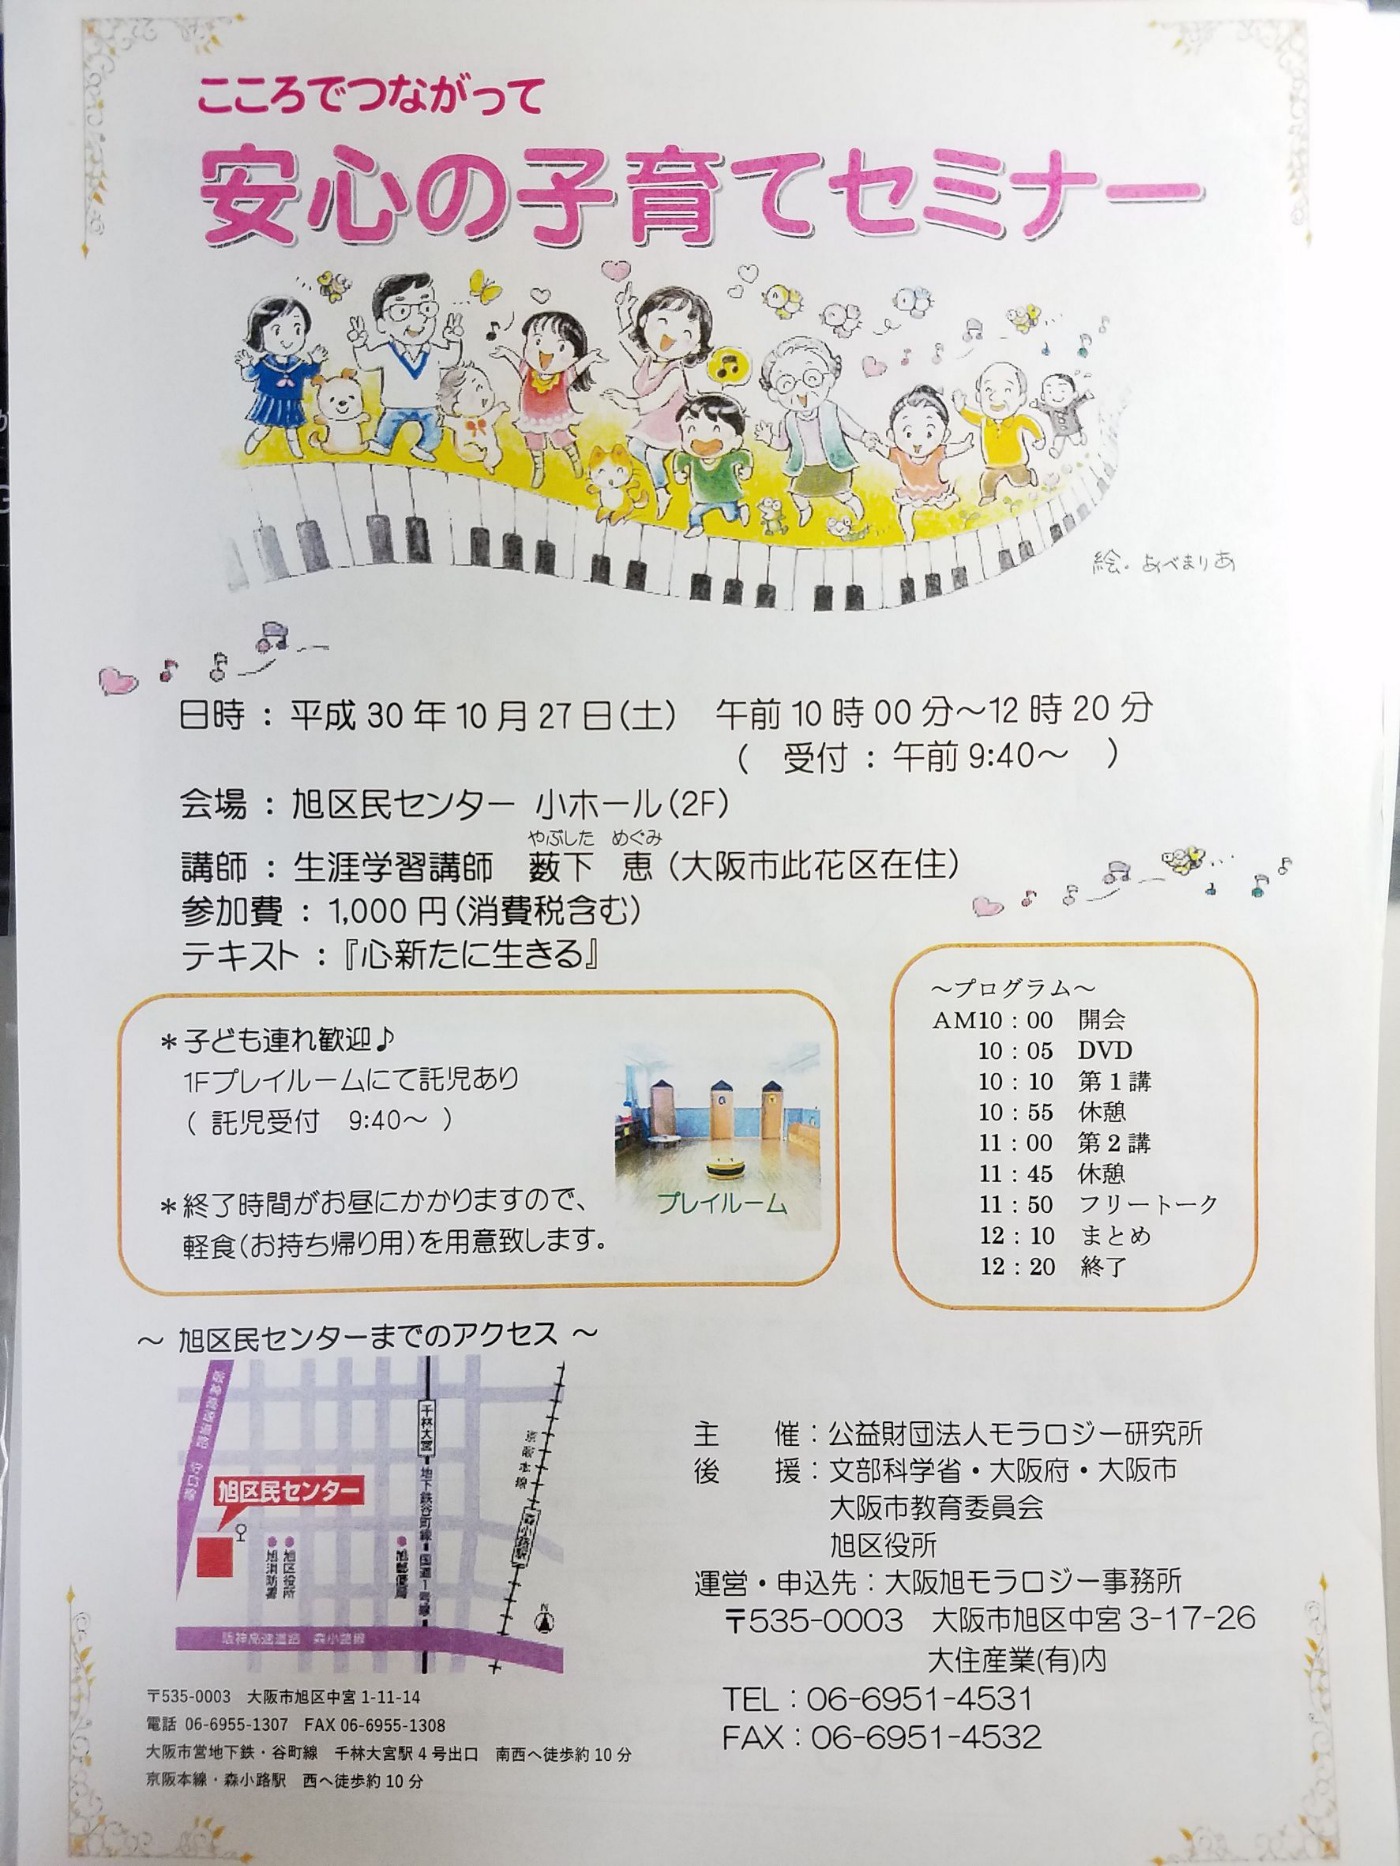 こころでつながって
安心の子育てセミナー
絵・あべまりあ
日時 : 平成 30 年 10 月 27 日(土) 午前 10 時 00 分～12 時 20 分
( 受付 : 午前 9:40～ )
会場 : 旭区民センター 小ホール(2F)
やぶした めぐみ
講師 : 生涯学習講師 薮下 恵 (大阪市此花区在住)
参加費 : 1,000 円(消費税含む)
テキスト : 『心新たに生きる』
＊子ども連れ歓迎♪
1Fプレイルームにて託児あり
( 託児受付 9:40～ )
＊終了時間がお昼にかかりますので、
軽食(お持ち帰り用)を用意致します。
プレイルーム
～プログラム～
AM10：00 開会
10：05 DVD
10：10 第1講
10：55 休憩
11：00 第2講
11：45 休憩
11：50 フリートーク
12：10 まとめ
12：20 終了
～ 旭区民センターまでのアクセス ～
千林大宮
地下鉄谷町線・国道1号線
京阪本線
森小路駅
旭区民センター
旭消防署
旭区役所
旭郵便局
N
阪神高速道路 森小路線
〒535-0003 大阪市旭区中宮 1-11-14
電話 06-6955-1307 FAX 06-6955-1308
大阪市営地下鉄・谷町線 千林大宮駅 4 号出口 南西へ徒歩約 10 分
京阪本線・森小路駅 西へ徒歩約 10 分
主 催：公益財団法人モラロジー研究所
後 援：文部科学省・大阪府・大阪市
大阪市教育委員会
旭区役所
運営・申込先：大阪旭モラロジー事務所
〒535-0003 大阪市旭区中宮 3-17-26
大住産業(有)内
TEL：06-6951-4531
FAX：06-6951-4532